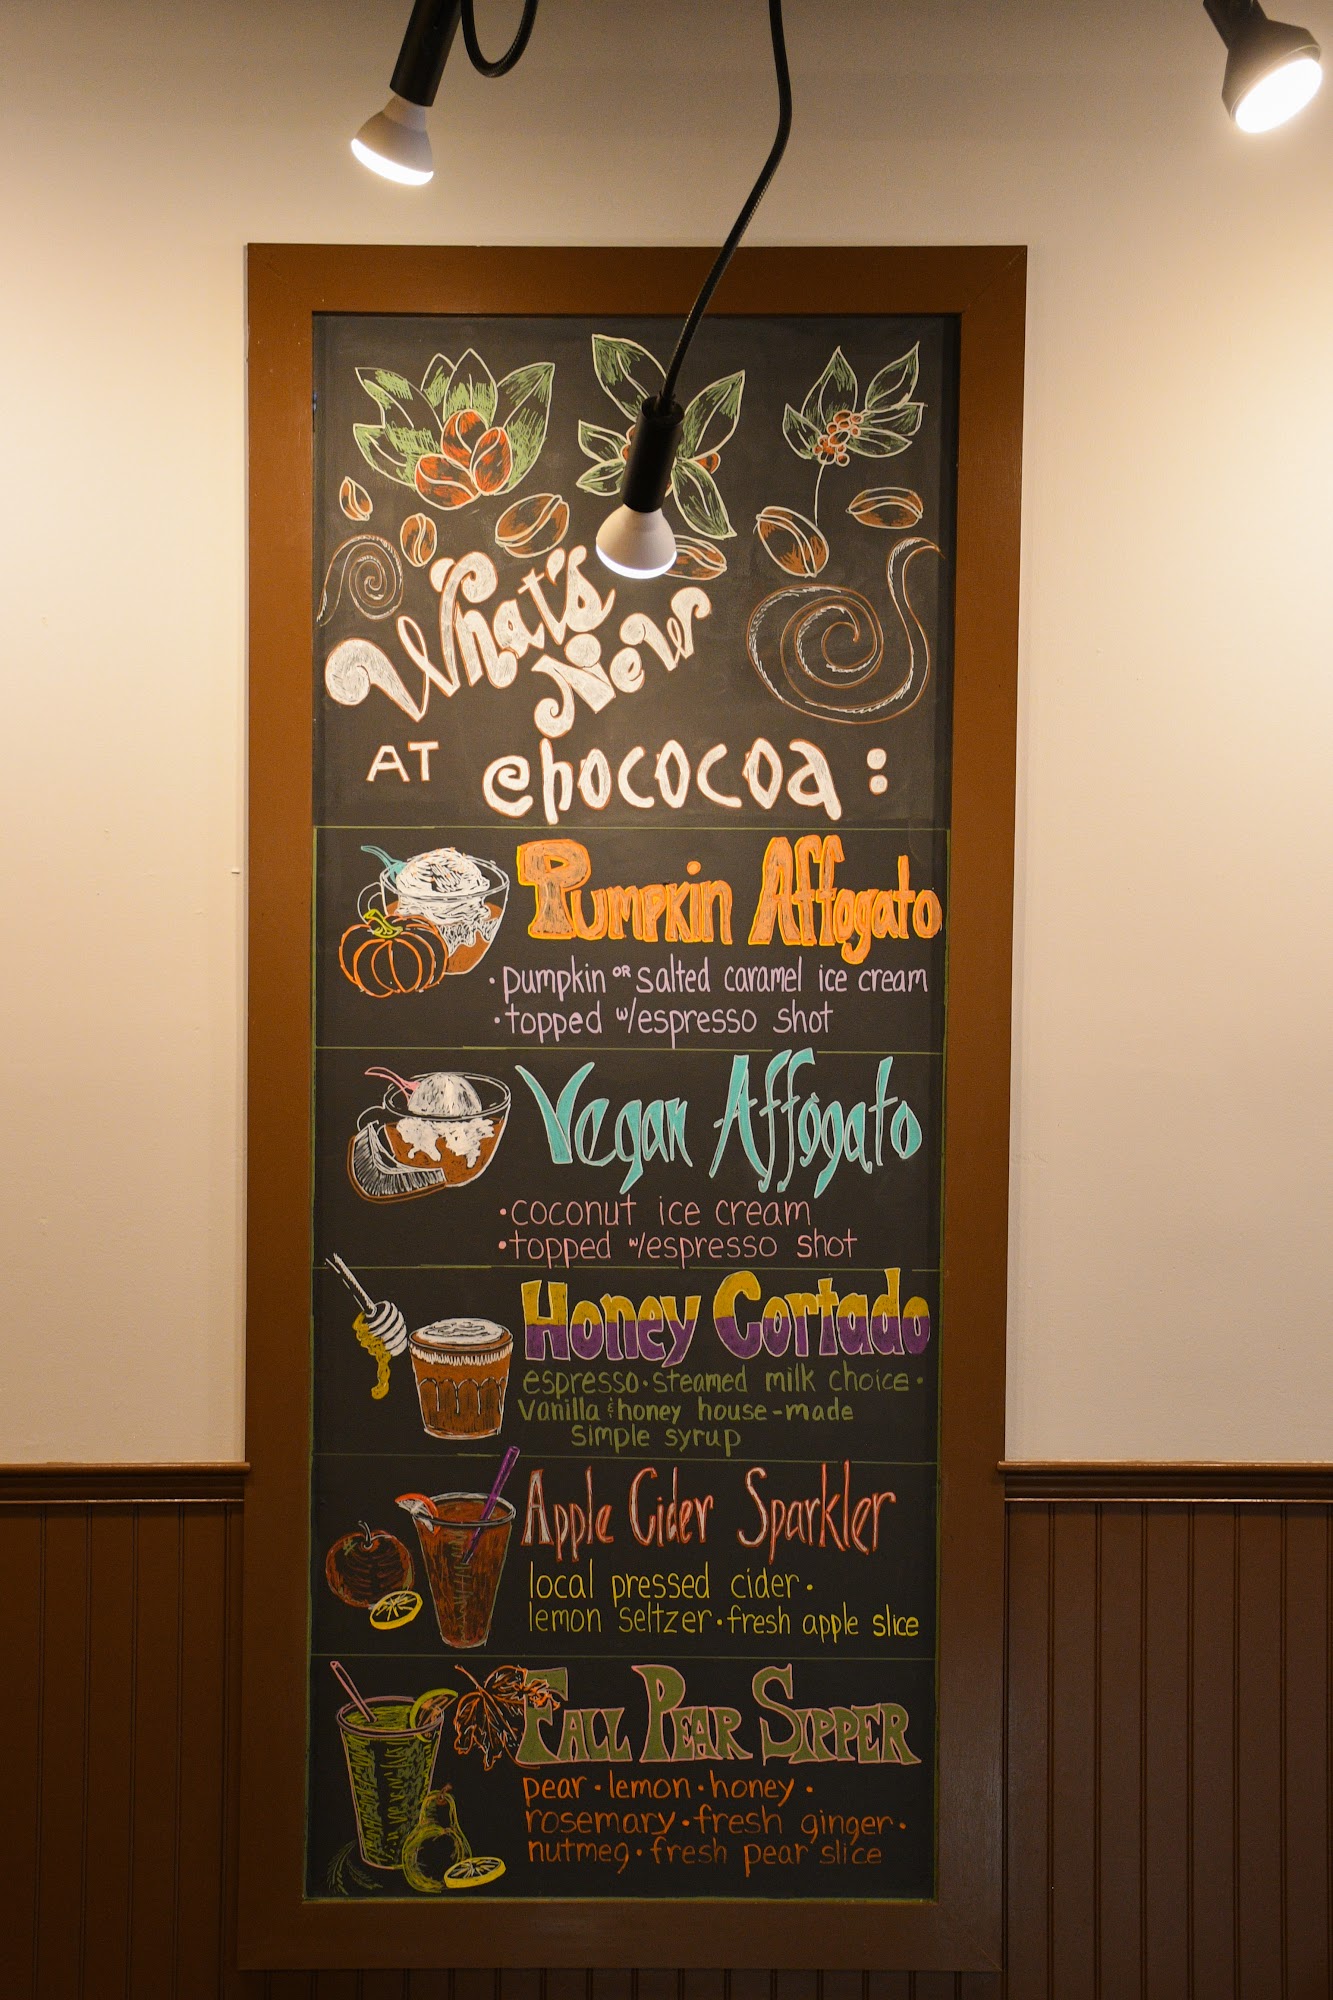 What's
New
AT chococoa:
Pumpkin Affogato
• pumpkin OR salted caramel ice cream
• topped w/espresso shot
Vegan Affogato
• coconut ice cream
• topped w/espresso shot
Honey Cortado
espresso • steamed milk choice •
vanilla & honey house-made
simple syrup
Apple Cider Sparkler
local pressed cider •
lemon seltzer • fresh apple slice
FALL PEAR SIPPER
pear • lemon • honey •
rosemary • fresh ginger •
nutmeg • fresh pear slice